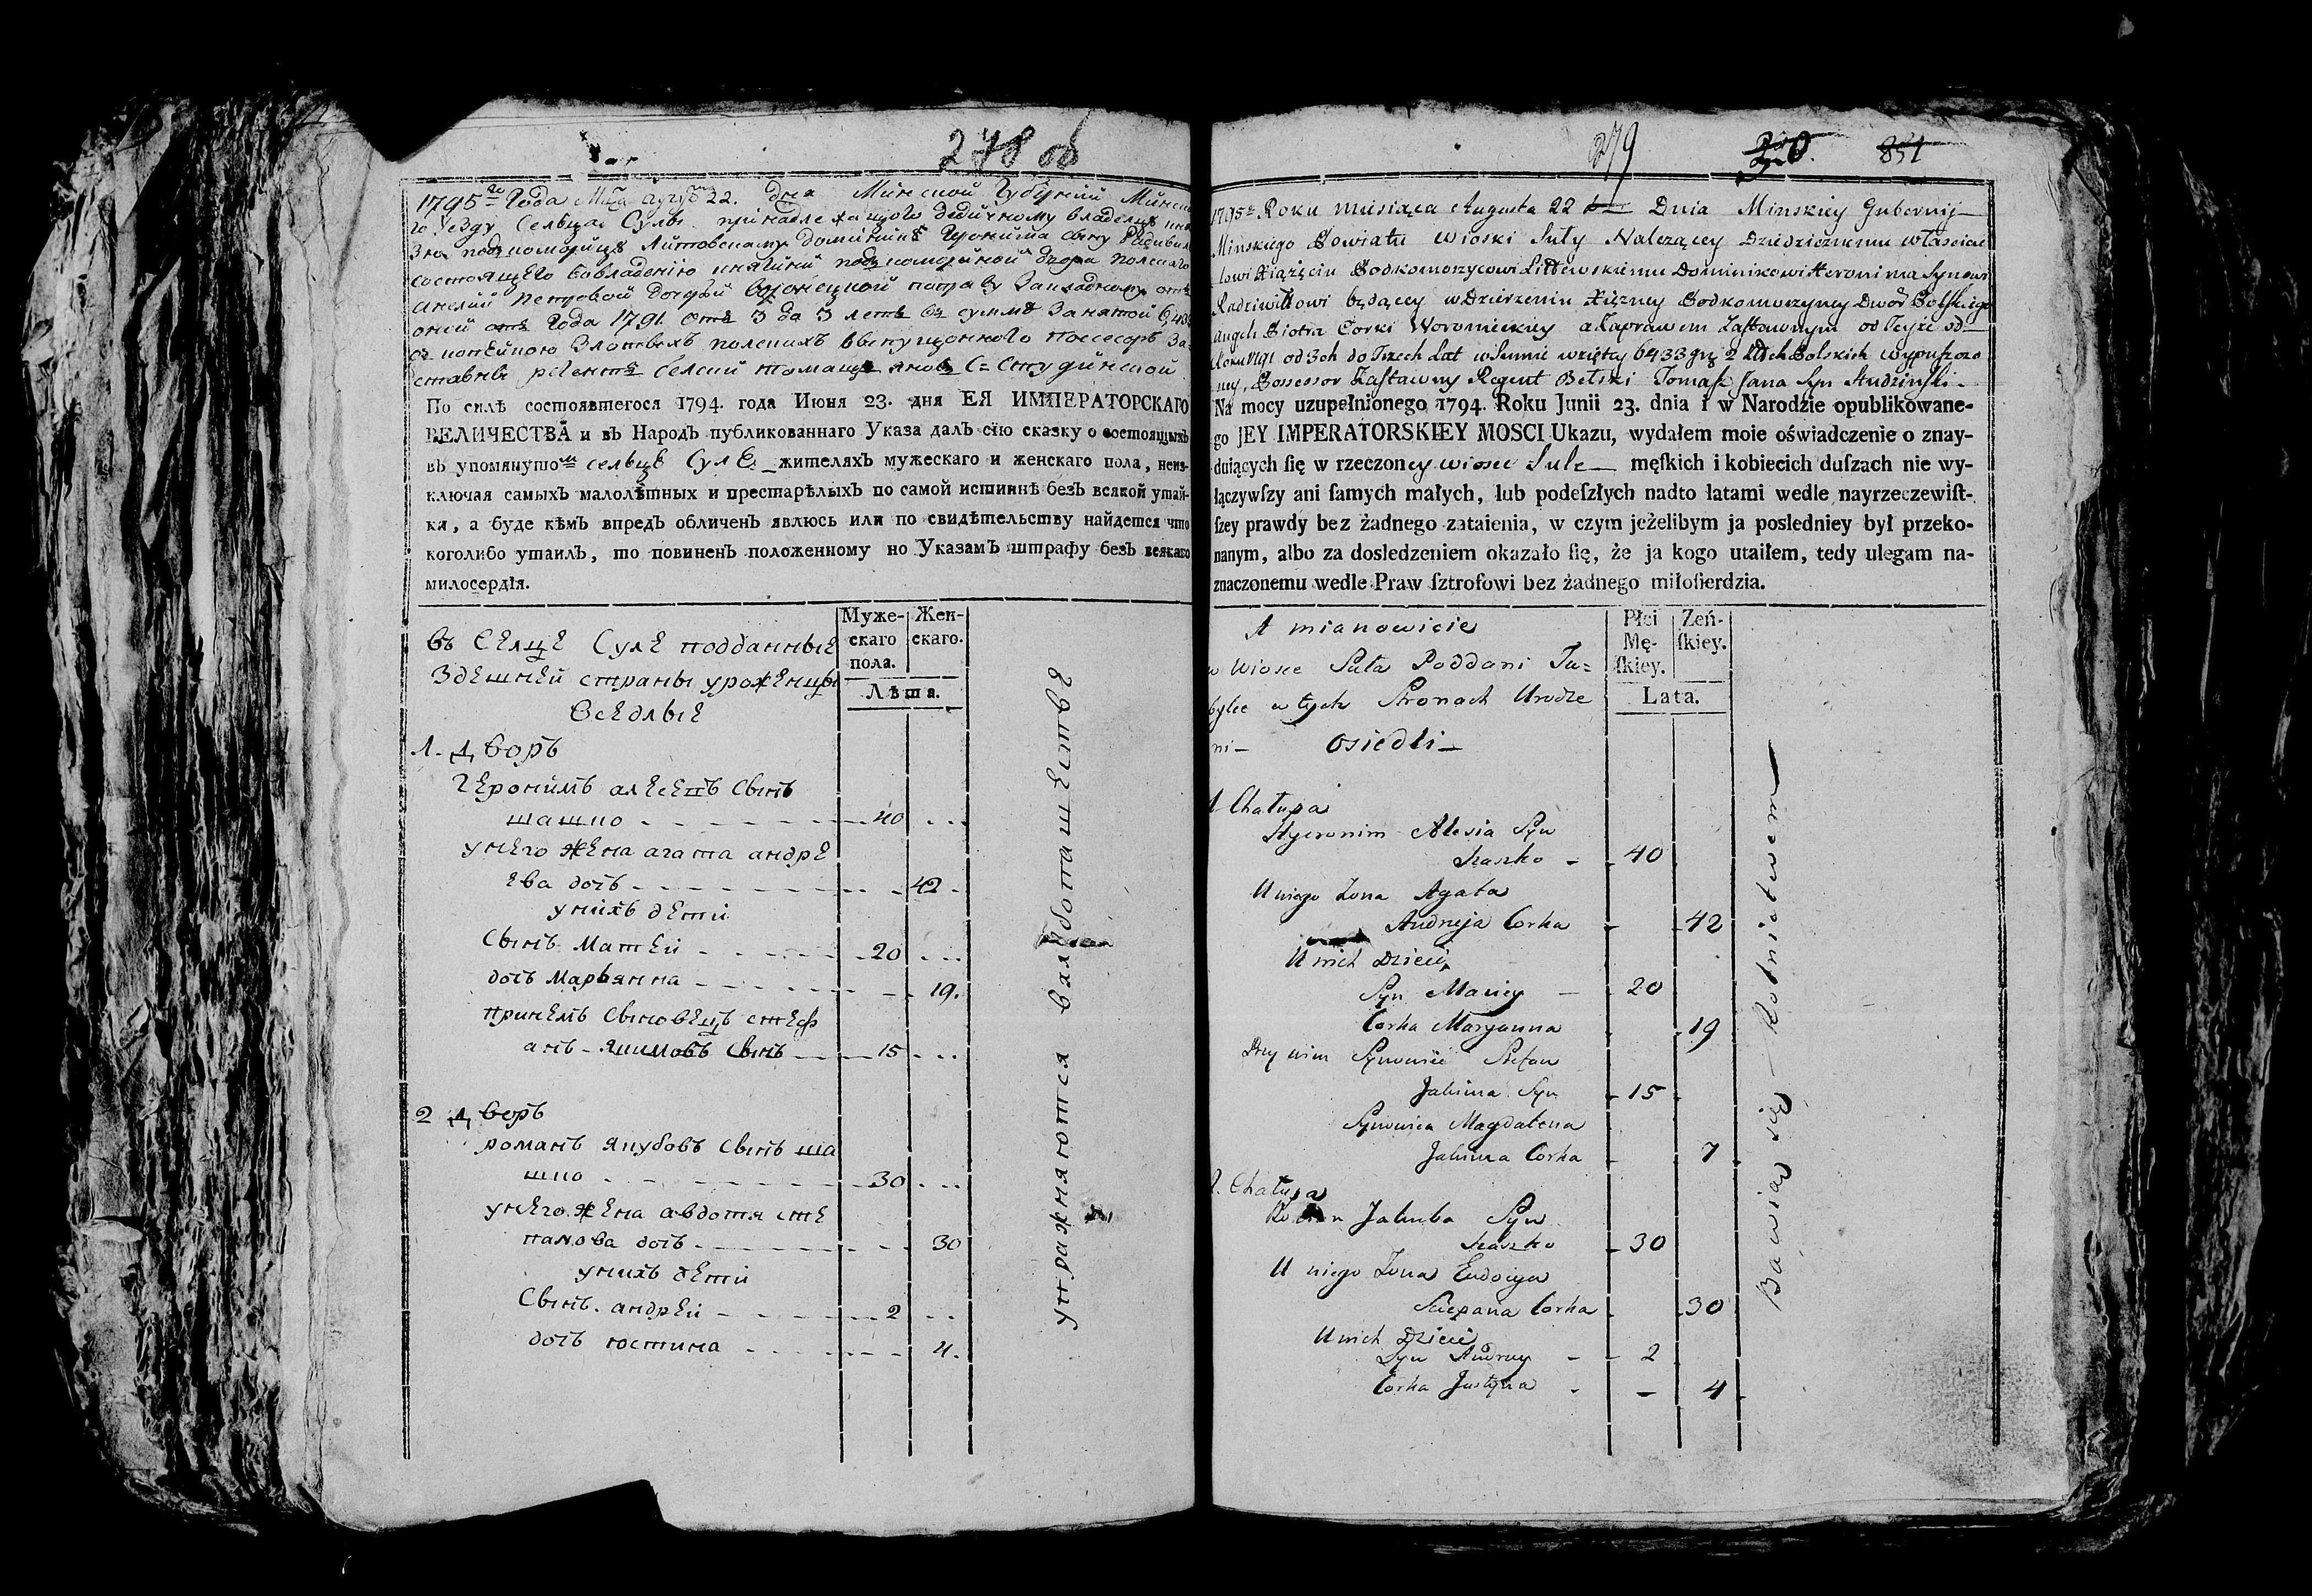 278 об
1795го Года Мца августа 22. Дня Минской Губерний Минска
го уезду Сельца Сулы принадлежащого дедичному владелцу кня
зю подкоморицу Литовскому Доминику Героnима сыну Радивил
состоящего во владению княгини подкоморыной двора полскаго
Анелии Петровой дочерй Воронецкой поправу закладному отъ
оной отъ Года 1791 отъ 3 до 3 летъ въ сумме занятой 6433
съ копейкою злотыхъ полскихъ выпущонного посесоръ за
ставны реентъ белский томашъ яновъ С: Студзинской
По силѣ состоявшегося 1794. года Июня 23. дня ЕЯ ИМПЕРАТОРСКАГО
ВЕЛИЧЕСТВА и въ Народъ публикованнаго Указа далъ сїю сказку о состоящихъ
въ упомянутомъ сельце Суле жителяхъ мужескаго и женскаго пола, неиз-
ключая самыхъ малолѣтныхъ и престарѣлыхъ по самой истиннѣ безъ всякой утай-
ки, а буде кѣмъ впредъ обличенъ явлюсь или по свидѣтельству найдется что
коголибо утаилъ, то повиненъ положенному по Указамъ штрафу безъ всякаго
милосердїя.
Муже-
скаго
пола.
Жен-
скаго.
Лѣта.
въ Селце Суле подданные
Здешней страны уроженцы
Оседлые
1. Дворъ
Геронимъ алесевъ сынъ
шашко 40
у него жена агата андре
ева дочь 42
у нихъ дети
Сынъ Матей 20
дочь Марьянна 19.
при немъ сыновецъ стеф
анъ якимовъ сынъ 15
2 Дворъ
романъ якубовъ сынъ ша
шко 30
у него жена авдотя сте
панова дочь 30
у нихъ дети
Сынъ андрей 2
дочь юстина 4.
упражняются вахлебопашестве
279 350. 851
1795o Roku miesiąca Augusta 22 Dnia Minskiey Gubernij
Minskiego Powiatu wioski Suły Nalezącey Dziedzicznemu własciсie
lowi Xiążęciu Podkomorzycowi Littewskiemu Dominikowi Heronima Synowi
Radziwiłłowi będącey w Dzierzeniu Xiężney Podkomorzyney Dwor Polskiego
Angeli Piotra Corki Woronieckiey a Zaprawem Zastawnym od Teyże od
Roku 1791 od 3ch do Trzech Lat w Summie wziętey 6433 grz 2 złłch Polskich wypuszczo
ney, Possessor Zastawny Regent Belski Tomasz Jana Syn Studzinski
Na mocy uzupełnionego 1794. Roku Junii 23. dnia i w Narodzie opublikowane-
go JEY IMPERATORSKIEY MOSCI Ukazu, wydałem moie oświadczenie o znay-
duiących ſię w rzeczoney wiosce Sule męſkich i kobiecich duſzach nie wy-
łączywſzy ani ſamych małych, lub podeſzłych nadto latami wedle nayrzeczewiſt-
ſzey prawdy bez żadnego zataienia, w czym jeżelibym ja posledniey był przeko-
nanym, albo za dosledzeniem okazało ſię, że ja kogo utaiłem, tedy ulegam na-
znaczonemu wedle Praw ſztrofowi bez żadnego miłoſierdzia.
Płci
Mę-
ſkiey.
Zeń-
ſkiey.
Lata.
A mianowicie
w Wiosce Suła Poddani Tu=
bylce w tych Stronach Urodze
ni Osiedli
1 Chałupa
Hyeronim Alexia Syn
Szaszko 40
U niego Zona Agata
Andrzeja Corka 42
U nich Dzieci
Syn Maciey 20
Corka Maryanna 19
Przy nim Synowiec Stefan
Jakima Syn 15
Synowica Magdalena
Jakima Corka 7
2. Chałupa
Roman Jakuba Syn
Szaszko 30
U niego Zona Eudocya
Sciepana Corka 30
U nich Dzieci
Syn Andrzey 2
Corka Justyna 4
Bawią się Rolnictwem